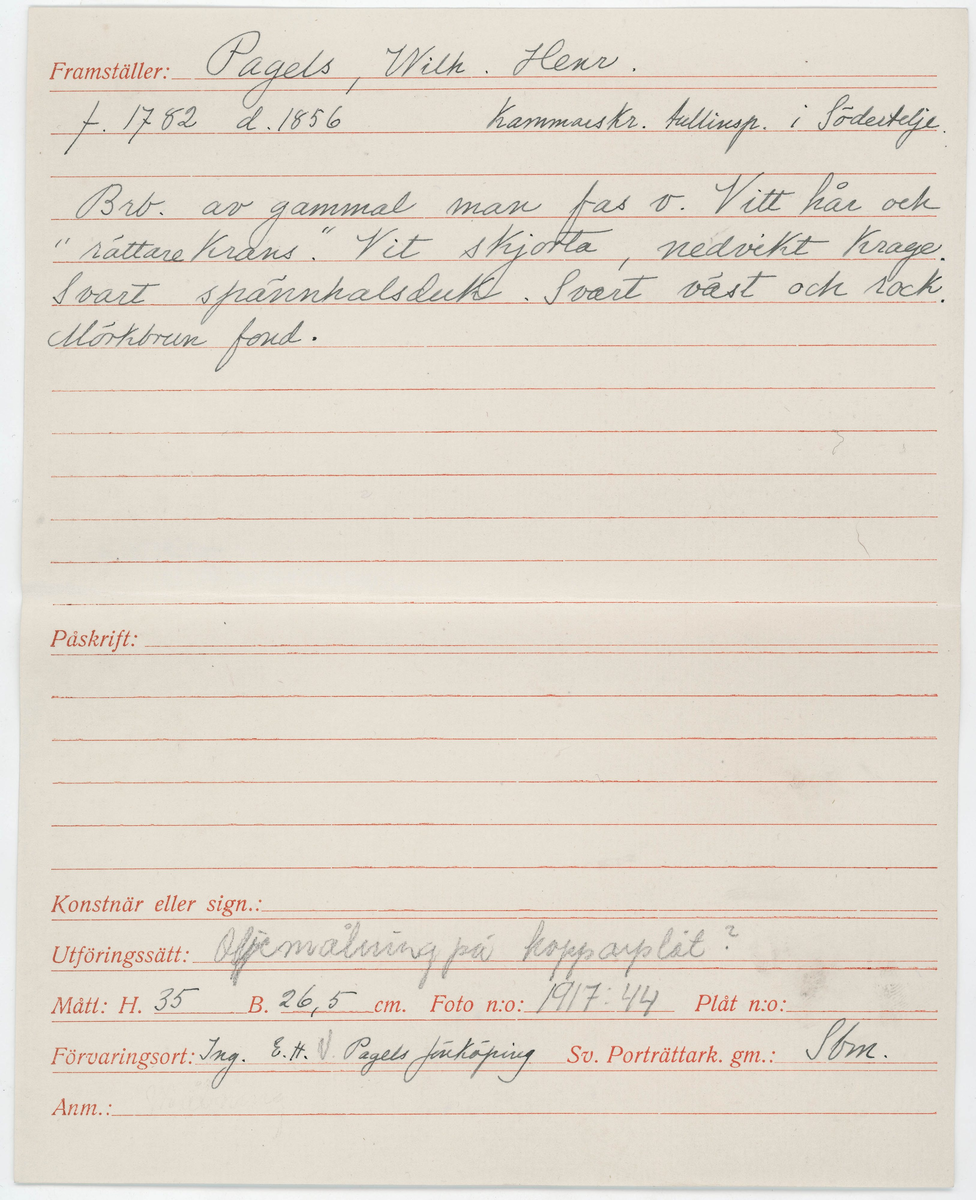 Framställer: Pagels, Wilh. Henr.
f. 1782 d. 1856 Kammarskr. tullinsp. i Södertelje.
Brb. av gammal man fas v. Vitt hår och
"rättarekrans". Vit skjorta, nedvikt krage.
Svart spännhalsduk. Svart väst och rock.
Mörkbrun fond.
Påskrift:
Konstnär eller sign.:
Utföringssätt: Oljemålning på kopparplåt?
Mått: H. 35 B. 26,5 cm. Foto n:o: 1917:44 Plåt n:o:
Förvaringsort: Ing. E.H.V. Pagels Jönköping Sv. Porträttark. gm.: Sbm.
Anm.: